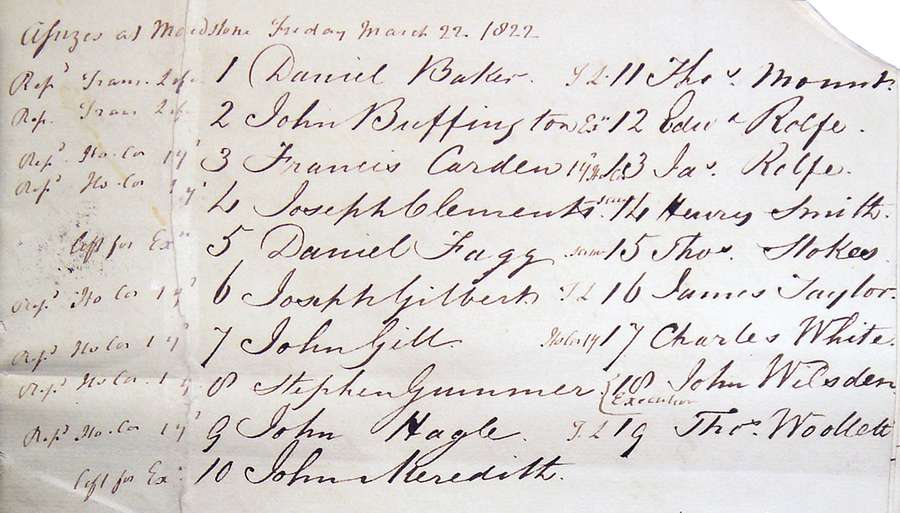 Assizes at Maidstone Friday March 22. 1822
Repd Trans. Life 1 Daniel Baker. T L 11 Thos. Mount.
Rep. Trans Life 2 John Buffington Exn 12 Edwd Rolfe.
Repd. Ho. Cor 1 yr 3 Francis Carden 1 yr Ho Cor 13 Jas. Rolfe.
Repd Ho. Cor 1 yr 4 Joseph Clements. same 14 Henry Smith.
left for Exn 5 Daniel Fagg same 15 Thos. Stokes.
Repd Ho Cor 1 yr 6 Joseph Gilbert T L 16 James Taylor.
Repd Ho Cor 1 yr 7 John Gill Ho Cor 1 y 17 Charles White.
Repd Ho Cor. 1 yr 8 Stephen Gummer 18 John Wilsden
Execution
Repd Ho. Cor 1 yr 9 John Hagle. T. L 19 Thos. Woollett
left for Exn 10 John Meredith.